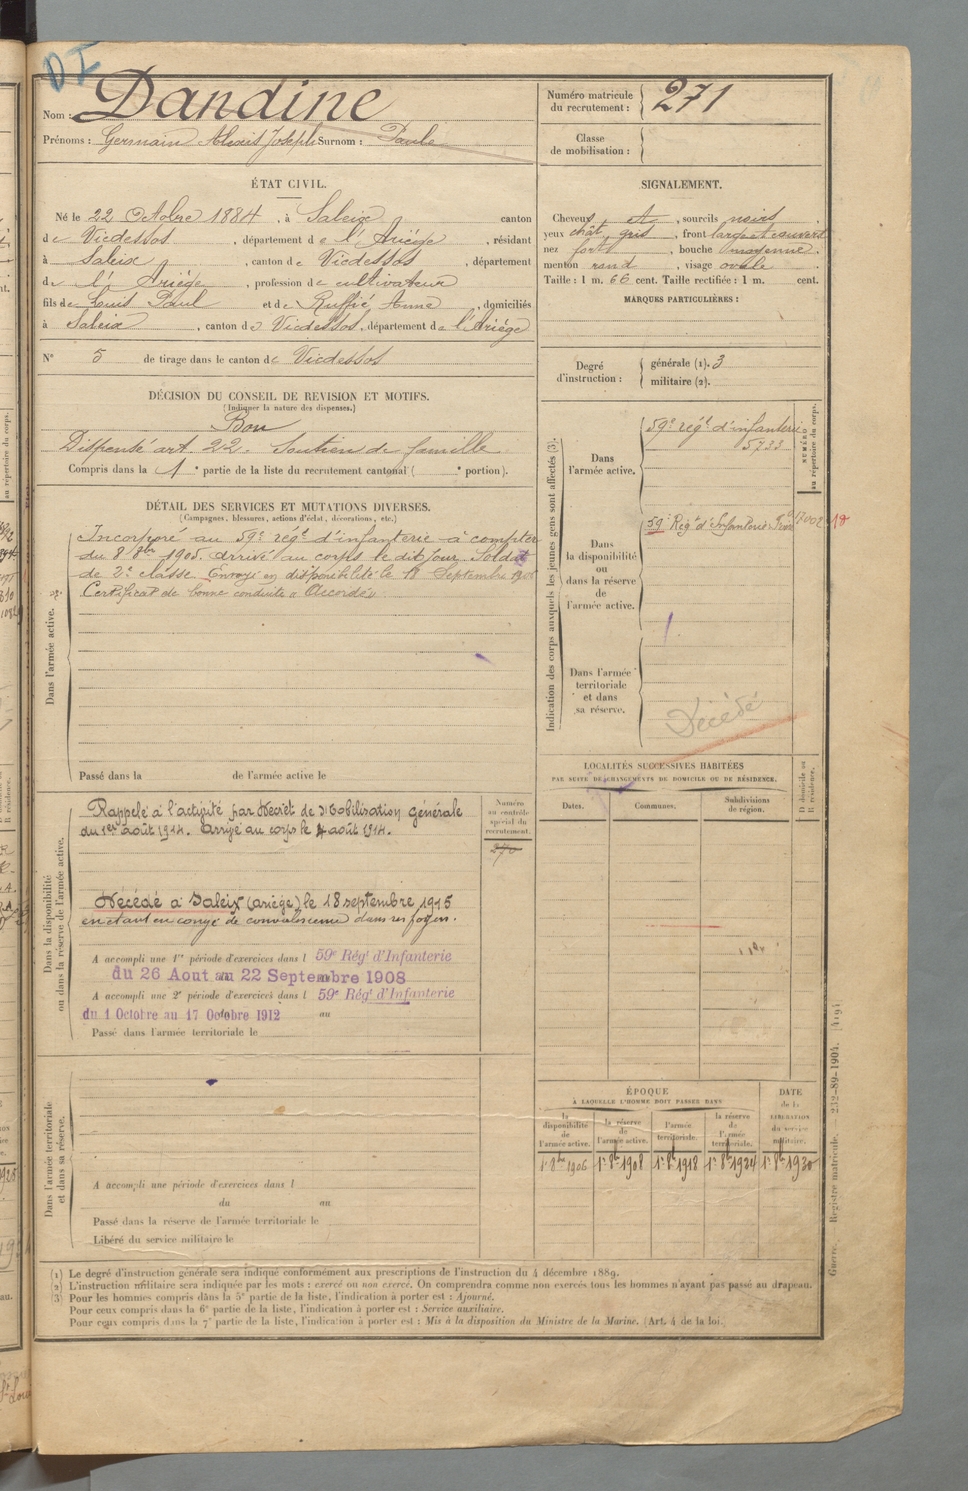 DI
Nom : Dandine
Prénoms : Germain Alexis Joseph Surnom : Paule
ÉTAT CIVIL.
Né le 22 Octobre 1884, à Saleix canton
de Vicdessos, département de l'Ariège, résidant
à Saleix, canton de Vicdessos, département
de l'Ariège, profession de cultivateur
fils de Louis Paul et de Ruffié Anne, domiciliés
à Saleix, canton de Vicdessos, département de l'Ariège
N° 5 de tirage dans le canton de Vicdessos
DÉCISION DU CONSEIL DE REVISION ET MOTIFS.
(Indiquer la nature des dispenses.)
Bon
Dispensé art. 22. Soutien de famille
Compris dans la 1e partie de la liste du recrutement cantonal ( e portion).
DÉTAIL DES SERVICES ET MUTATIONS DIVERSES.
(Campagnes, blessures, actions d'éclat, décorations, etc.)
Dans l'armée active.
Incorporé au 59e régt d'infanterie à compter
du 8 8bre 1905. arrivé au corps le dit jour. Soldat
de 2e classe. Envoyé en disponibilité le 18 Septembre 1906
Certificat de bonne conduite « Accordé »
Passé dans la de l'armée active le
Dans la disponibilité
ou dans la réserve de l'armée active.
Rappelé à l'activité par Décret de Mobilisation générale
du 1er août 1914. arrivé au corps le 4 août 1914.
Décédé à Saleix (ariège) le 18 septembre 1915
en étant en congé de convalescence dans ses foyers.
A accompli une 1re période d'exercices dans l 59e Régt d'Infanterie
du 26 Aout au 22 Septembre 1908
A accompli une 2e période d'exercices dans l 59e Régt d'Infanterie
du 1 Octobre au 17 Octobre 1912 au
Passé dans l'armée territoriale le
Numéro
au contrôle
spécial du
recrutement.
270
Dans l'armée territoriale
et dans sa réserve.
A accompli une période d'exercices dans l
du au
Passé dans la réserve de l'armée territoriale le
Libéré du service militaire le
Numéro matricule
du recrutement : 271
Classe
de mobilisation :
SIGNALEMENT.
Cheveux et, sourcils noirs,
yeux chât. gris, front large et couvert
nez fort, bouche moyenne.
menton rond, visage ovale
Taille : 1 m. 66 cent. Taille rectifiée : 1 m. cent.
MARQUES PARTICULIÈRES :
Degré
d'instruction :
générale (1). 3
militaire (2).
Indication des corps auxquels les jeunes gens sont affectés (3).
NUMÉRO
au répertoire du corps.
Dans
l'armée active.
59e régt d'infanterie
5733
Dans
la disponibilité
ou
dans la réserve
de
l'armée active.
59e Régt d'Infanterie 7002 18
Dans l'armée
territoriale
et dans
sa réserve.
Décédé
LOCALITÉS SUCCESSIVES HABITÉES
PAR SUITE DE CHANGEMENTS DE DOMICILE OU DE RÉSIDENCE.
Dates.
Communes.
Subdivisions
de région.
D domicile ou
R résidence.
ÉPOQUE
À LAQUELLE L'HOMME DOIT PASSER DANS
DATE
de la
LIBÉRATION
du service
militaire.
la
disponibilité
de
l'armée active.
la réserve
de
l'armée active.
l'armée
territoriale.
la réserve
de
l'armée
territoriale.
1er 8bre 1906 1er 8bre 1908 1er 8bre 1918 1er 8bre 1924 1er 8bre 1930
Guerre. Registre matricule. — 232-89-1904. [419]
(1) Le degré d'instruction générale sera indiqué conformément aux prescriptions de l'instruction du 4 décembre 1889.
(2) L'instruction militaire sera indiquée par les mots : exercé ou non exercé. On comprendra comme non exercés tous les hommes n'ayant pas passé au drapeau.
(3) Pour les hommes compris dans la 5e partie de la liste, l'indication à porter est : Ajourné.
Pour ceux compris dans la 6e partie de la liste, l'indication à porter est : Service auxiliaire.
Pour ceux compris dans la 7e partie de la liste, l'indication à porter est : Mis à la disposition du Ministre de la Marine. (Art. 4 de la loi.